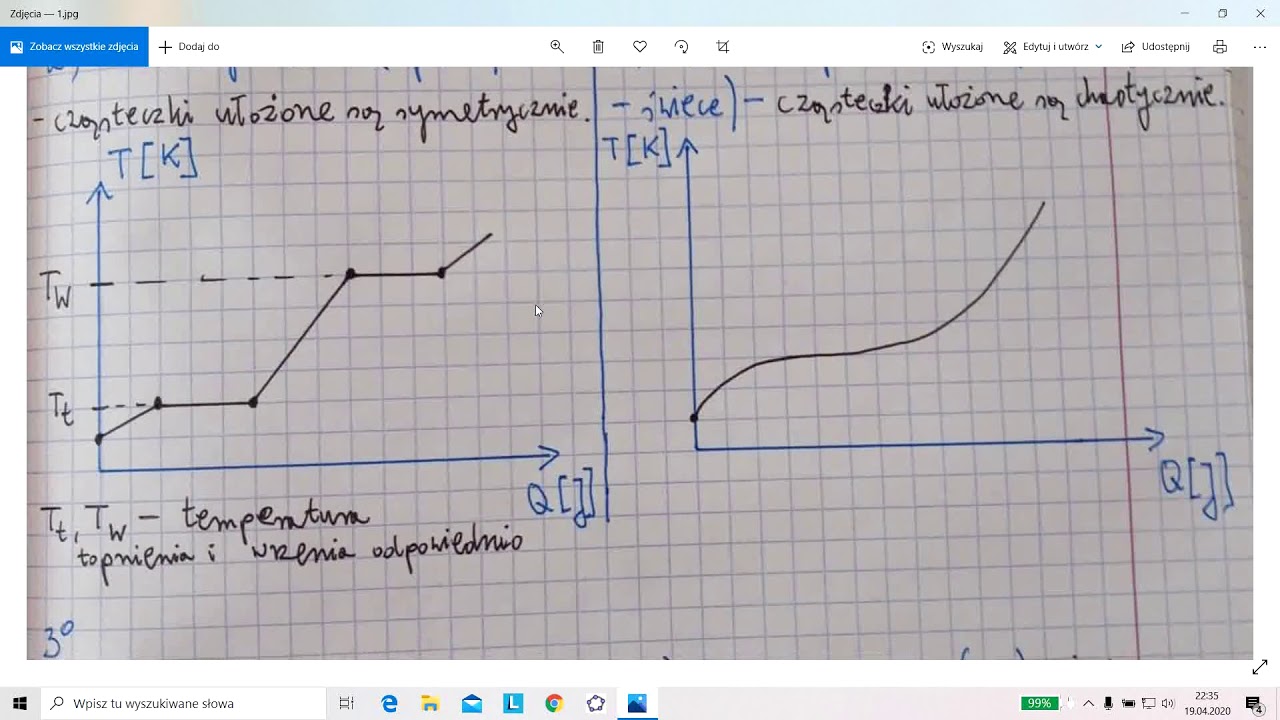 Zdjęcia — 1.jpg
Zobacz wszystkie zdjęcia
Dodaj do
Wyszukaj
Edytuj i utwórz
Udostępnij
- cząsteczki ułożone są symetrycznie.
T[K]
Tw
Tt
Q[J]
Tt, Tw - temperatura
topnienia i wrzenia odpowiednio
3°
- świece) - cząsteczki ułożone są chaotycznie.
T[K]
Q[J]
Wpisz tu wyszukiwane słowa
L
99%
22:35
19.04.2020
4